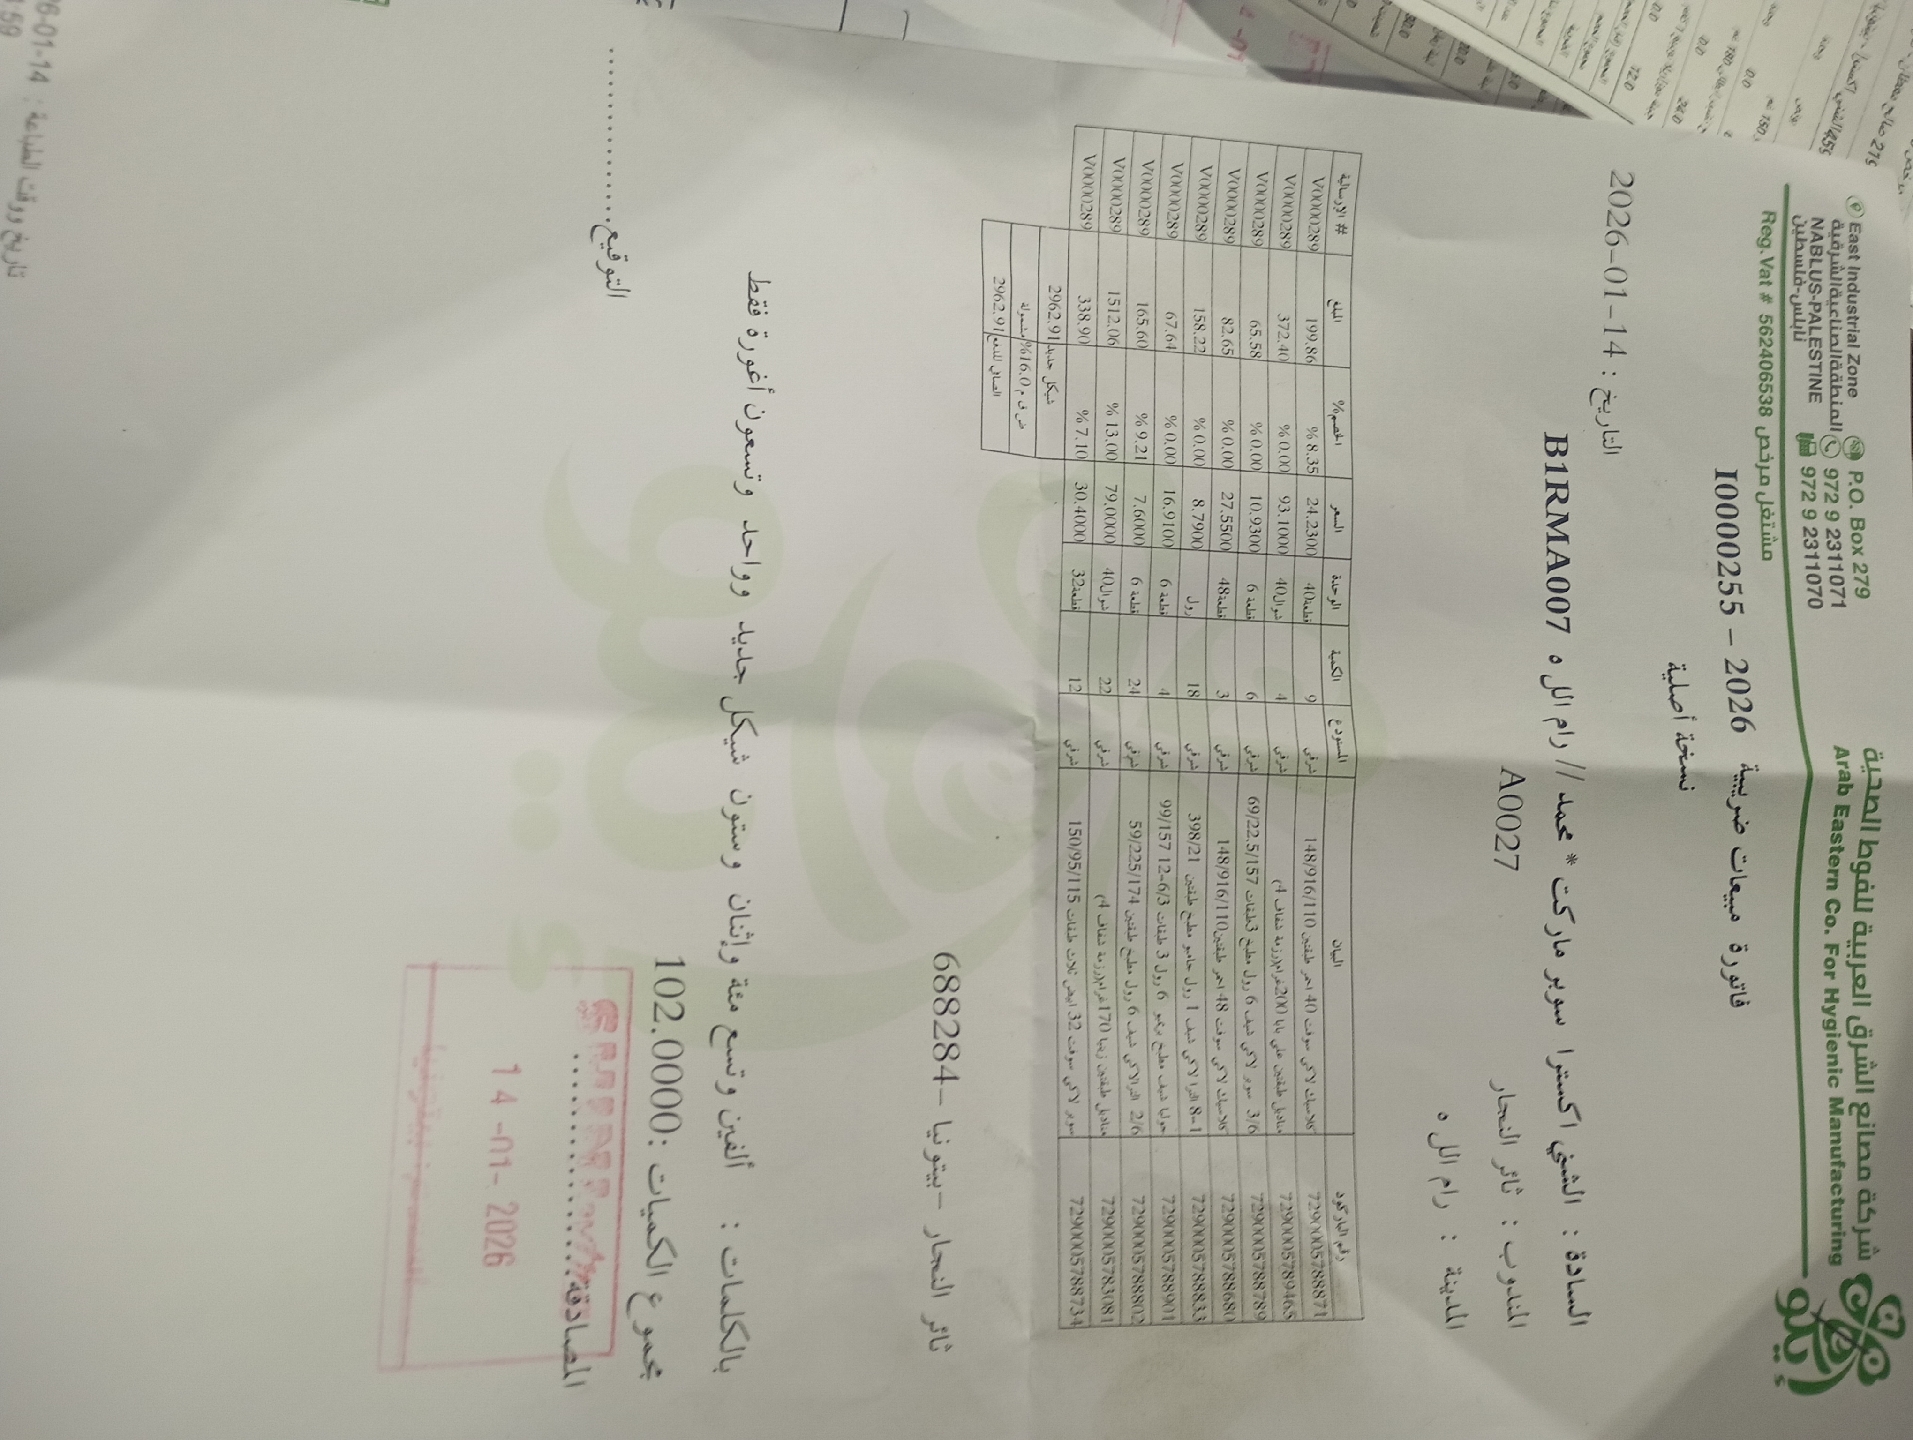 شركة مصانع الشرق العربية للفوط الصحية
Arab Eastern Co. For Hygienic Manufacturing
East Industrial Zone P.O. Box 279
المنطقة الصناعية الشرقية 972 9 2311071
NABLUS-PALESTINE 972 9 2311070
نابلس-فلسطين
Reg.Vat # 562406538 مشتغل مرخص
فاتورة مبيعات ضريبية I0000255 - 2026
نسخة أصلية
التاريخ : 2026-01-14
السادة : الشني اكسترا سوبر ماركت * محمد // رام الل ه B1RMA007
المندوب : ثائر النجار A0027
المدينة : رام الل ه
رقم الباركود البيان المستودع الكمية الوحدة السعر الخصم% المبلغ # الإرسالية
7290005788871 كلاسيك لاكي سوفت 40 احمر طبقتين 148/916/110 شرقي 9 قطعة40 24.2300 % 8.35 199.86 V0000289
7290005789465 مناديل طبقتين علي بابا 200غرام(رزمة شفاف 4) شرقي 4 شوال40 93.1000 % 0.00 372.40 V0000289
7290005788789 3/6 سوبر لاكي شيف 6 رول مطبخ 3طبقات 69/22.5/157 شرقي 6 قطعة 6 10.9300 % 0.00 65.58 V0000289
7290005788680 كلاسيك لاكي سوفت 48 احمر طبقتين148/916/110 شرقي 3 قطعة48 27.5500 % 0.00 82.65 V0000289
7290005788833 8-1 الترا لاكي شيف 1 رول جامبو مطبخ طبقتين 398/21 شرقي 18 رول 8.7900 % 0.00 158.22 V0000289
7290005788901 جوليا شيف مطبخ 6 رول 3 طبقات 12-6/3 99/157 شرقي 4 قطعة 6 16.9100 % 0.00 67.64 V0000289
7290005788802 2/6 الترالاكي شيف 6 رول مطبخ طبقتين 59/225/174 شرقي 24 قطعة 6 7.6000 % 9.21 165.60 V0000289
7290005783081 مناديل طبقتين زينيا 170غرام(رزمة شفاف 4) شرقي 22 شوال40 79.0000 % 13.00 1512.06 V0000289
7290005788734 سوبر لاكي سوفت 32 ابيض ثلاث طبقات 150/95/115 شرقي 12 قطعة32 30.4000 % 7.10 338.90 V0000289
شيكل جديد 2962.91
ض ق م 16.0% مشمولة
الصافي للدفع 2962.91
ثائر النجار -بيتونيا -688284
بالكلمات : ألفين وتسع مئة وإثنان وستون شيكل جديد وواحد وتسعون أغورة فقط
مجموع الكميات :102.0000
المصادقة..................
التوقيع..................
14-01-2026
تاريخ ووقت الطباعة :